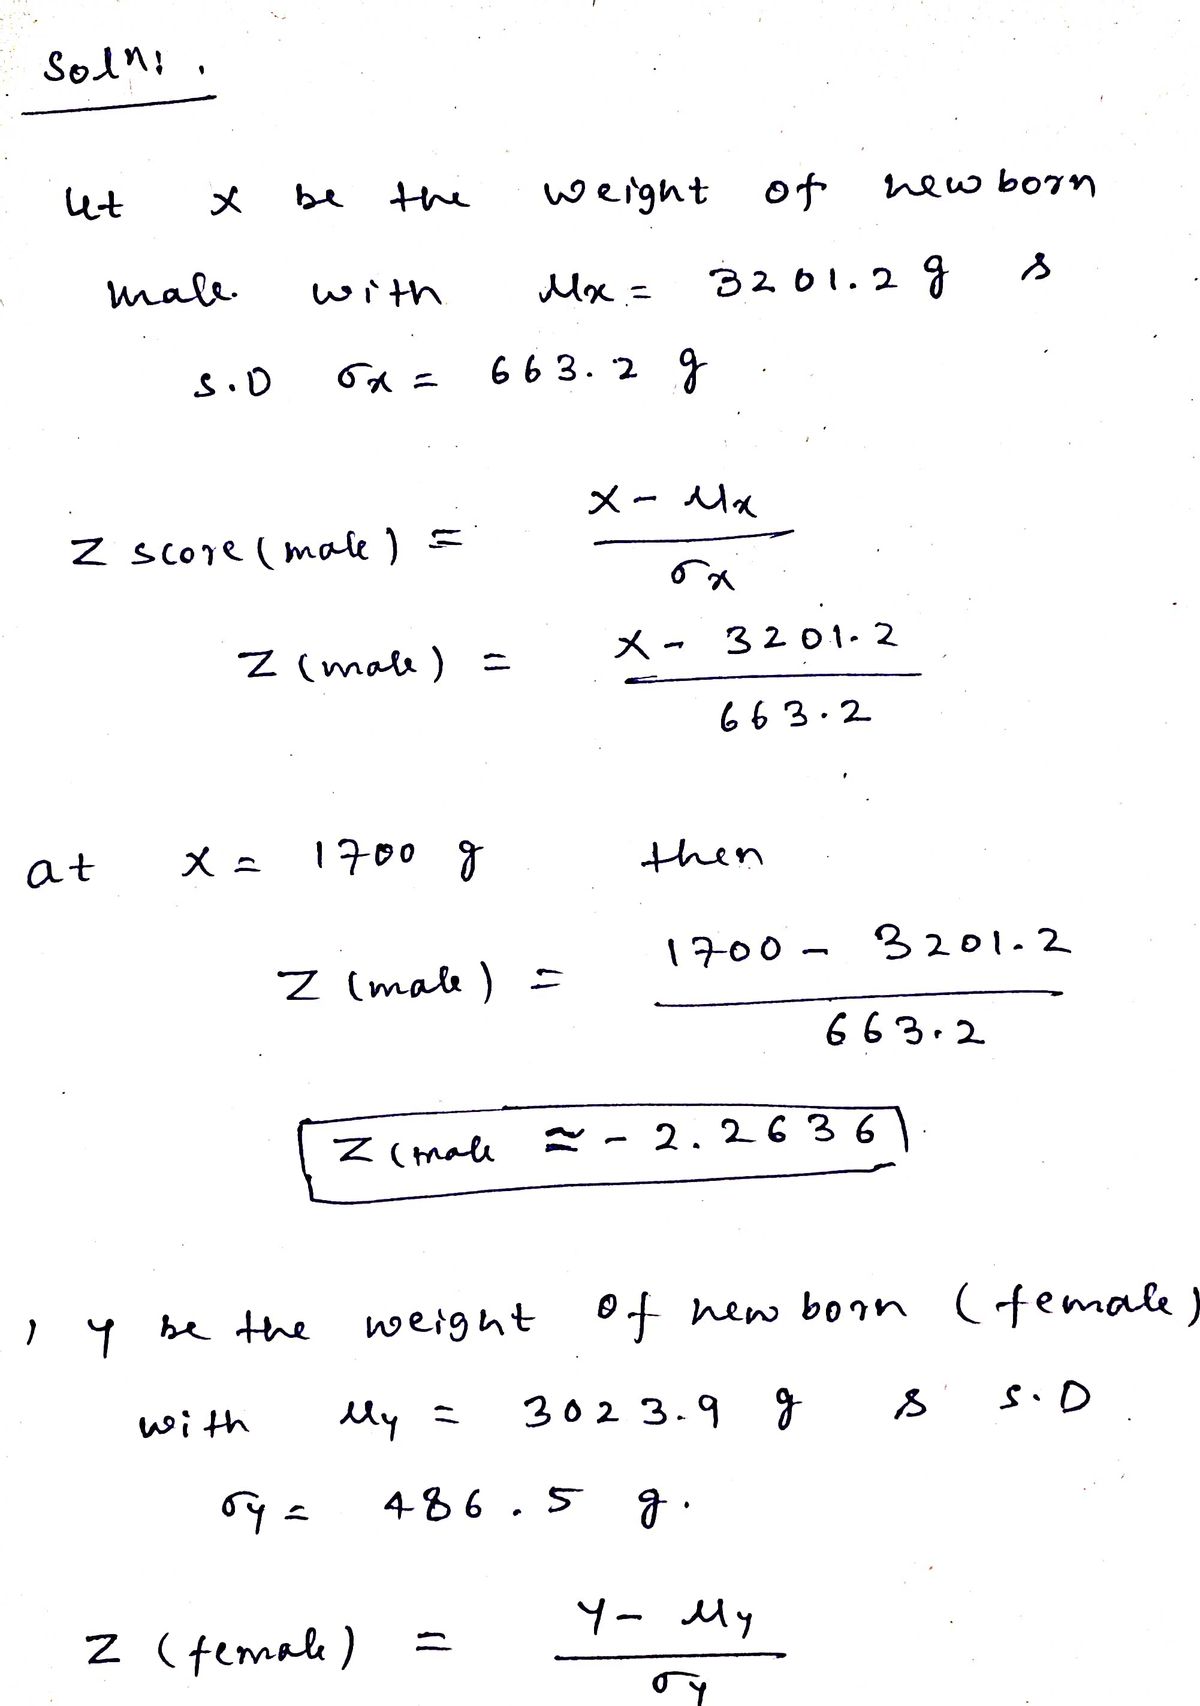 Soln:.
let x be the weight of new born
male. with μx = 3201.2 g &
S.D σx = 663.2 g
Z score (male) = X - μx / σx
Z (male) = X - 3201.2 / 663.2
at X = 1700 g then
Z (male) = 1700 - 3201.2 / 663.2
Z (male ≈ - 2.2636
, y be the weight of new born (female)
with μy = 3023.9 g & S.D
σy = 486.5 g.
Z (female) = Y - μy / σy